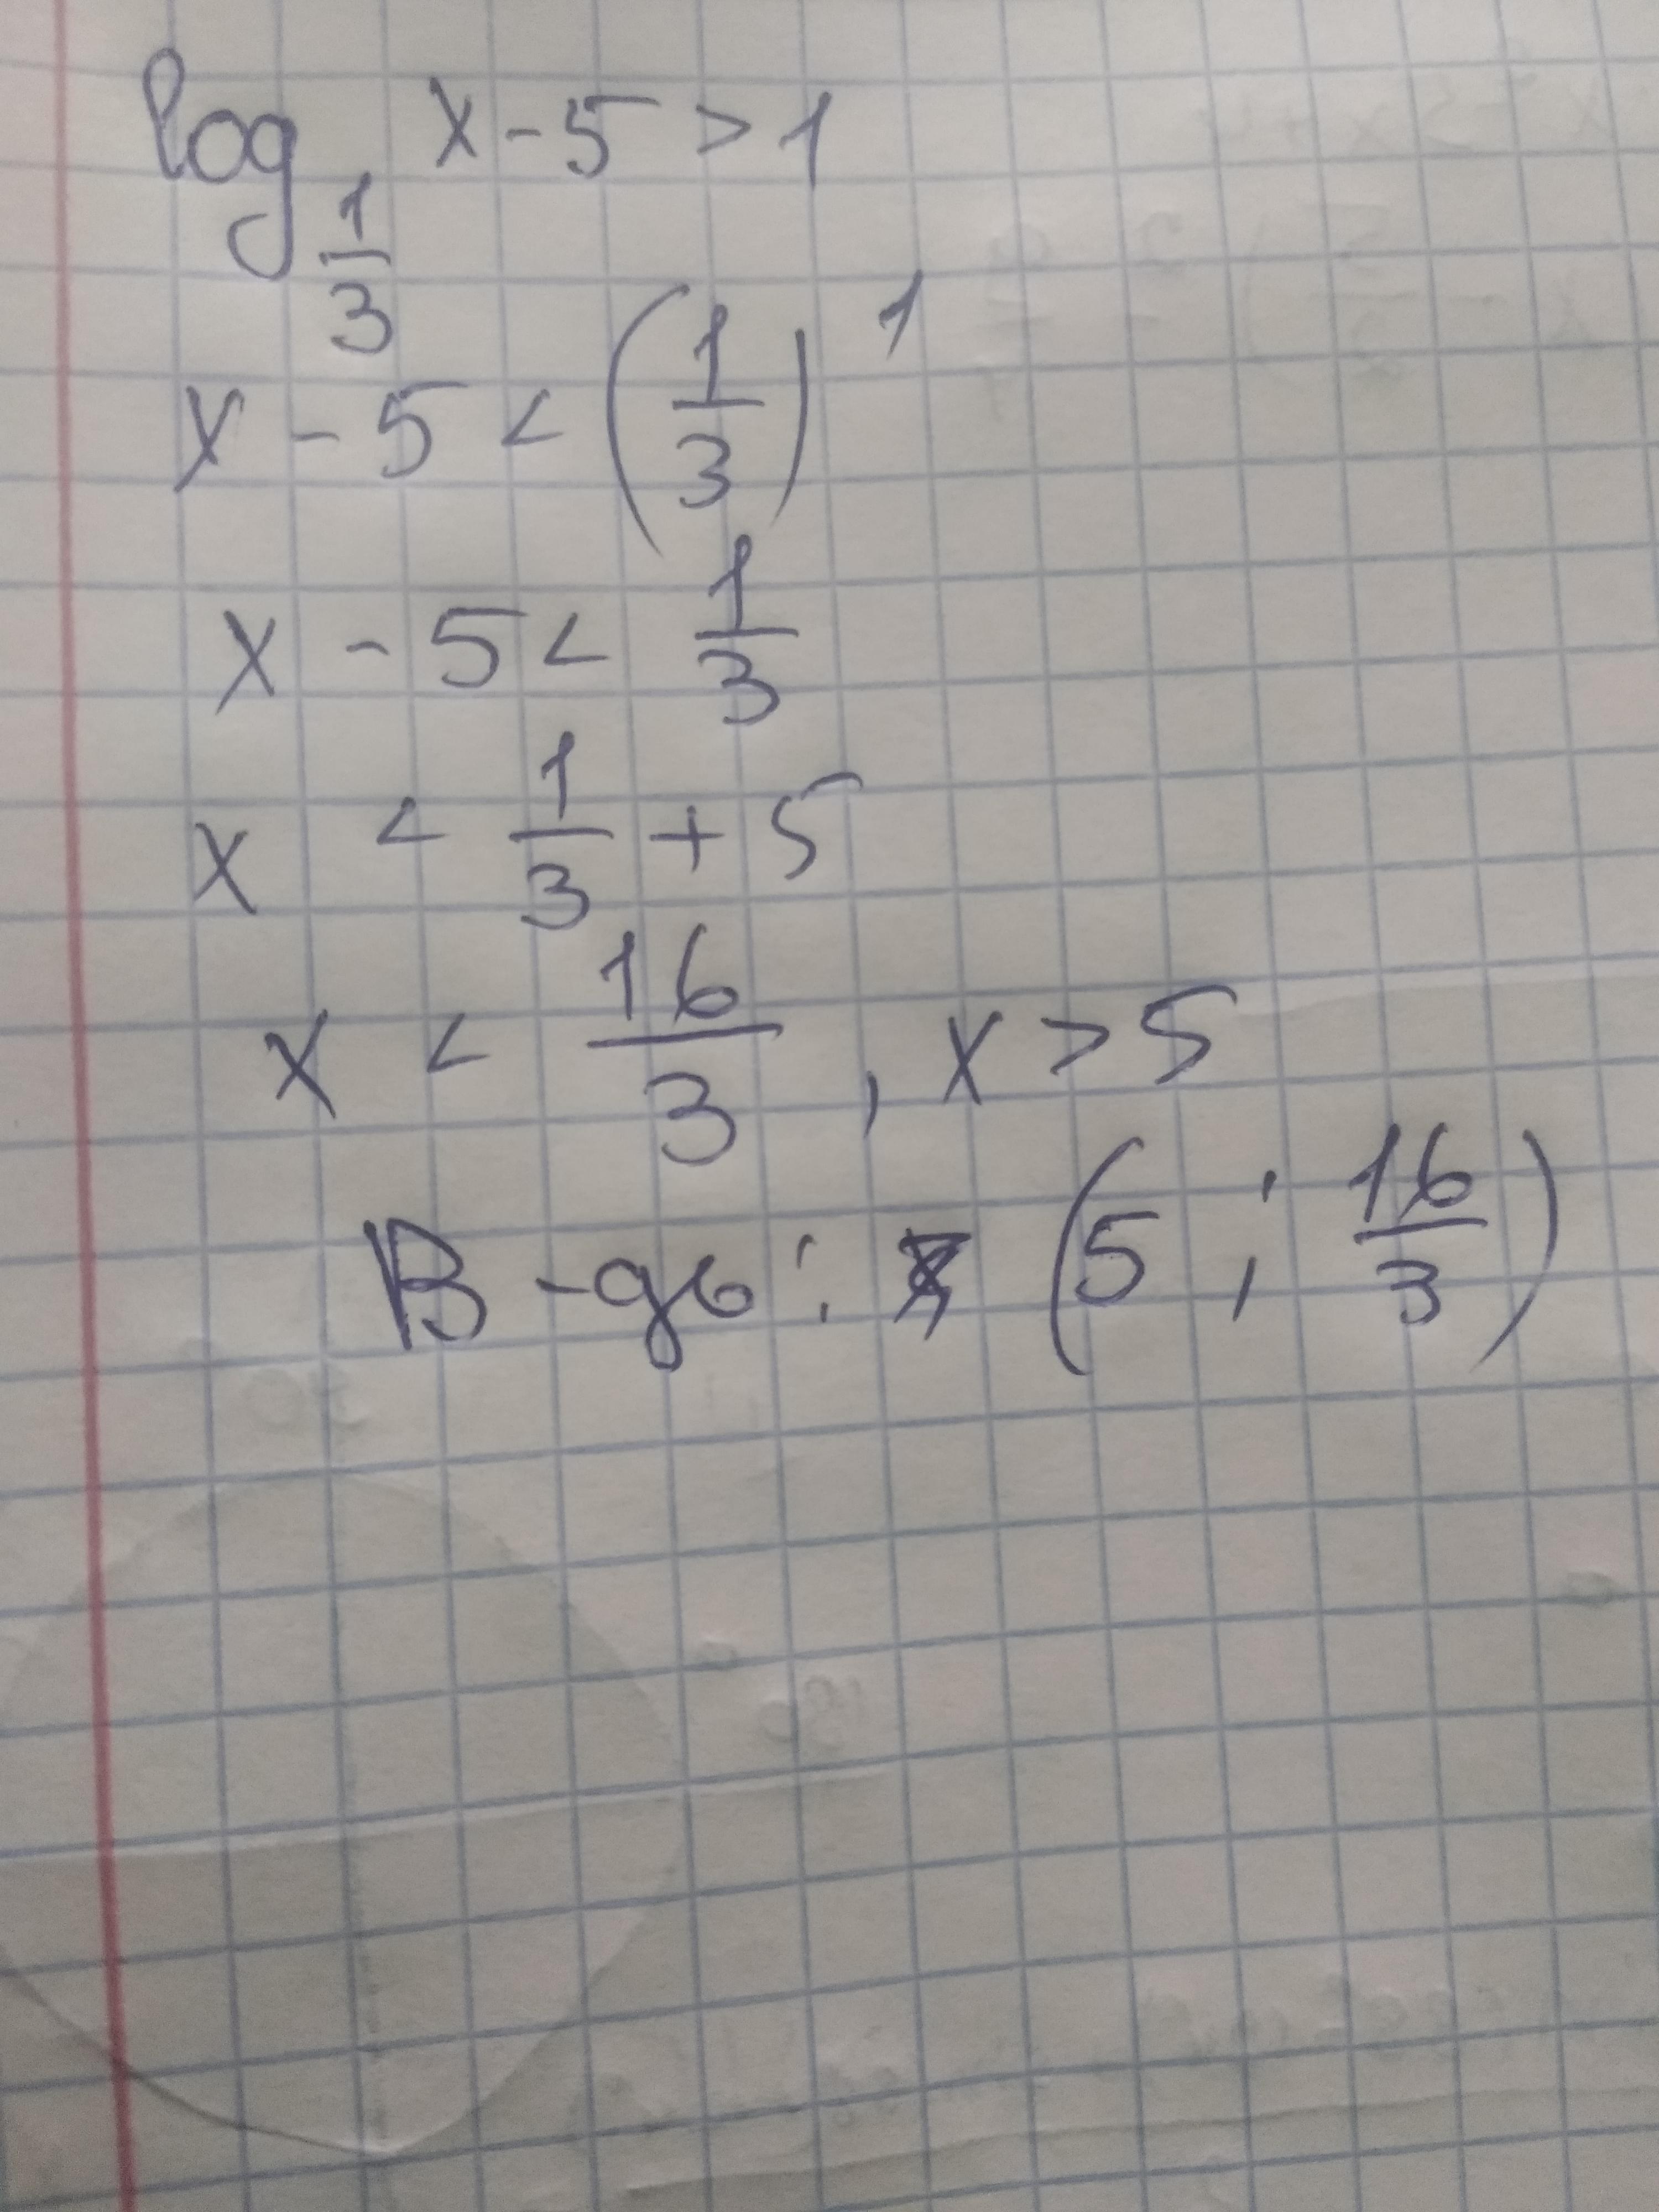 log_{1/3} x - 5 > 1
x - 5 < (1/3)^1
x - 5 < 1/3
x < 1/3 + 5
x < 16/3 , x > 5
В-дь: (5 ; 16/3)